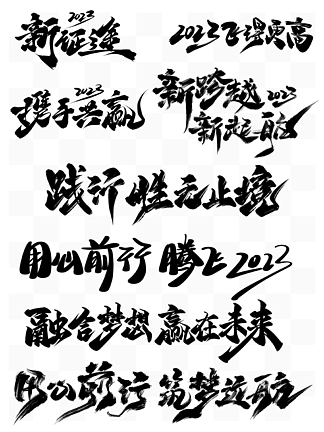 2023
新征途
2023飞得更高
2023
携手共赢
新跨越 2023
新起航
践行 无止境
用心前行 腾飞2023
融合梦想 赢在未来
用心前行 筑梦远航